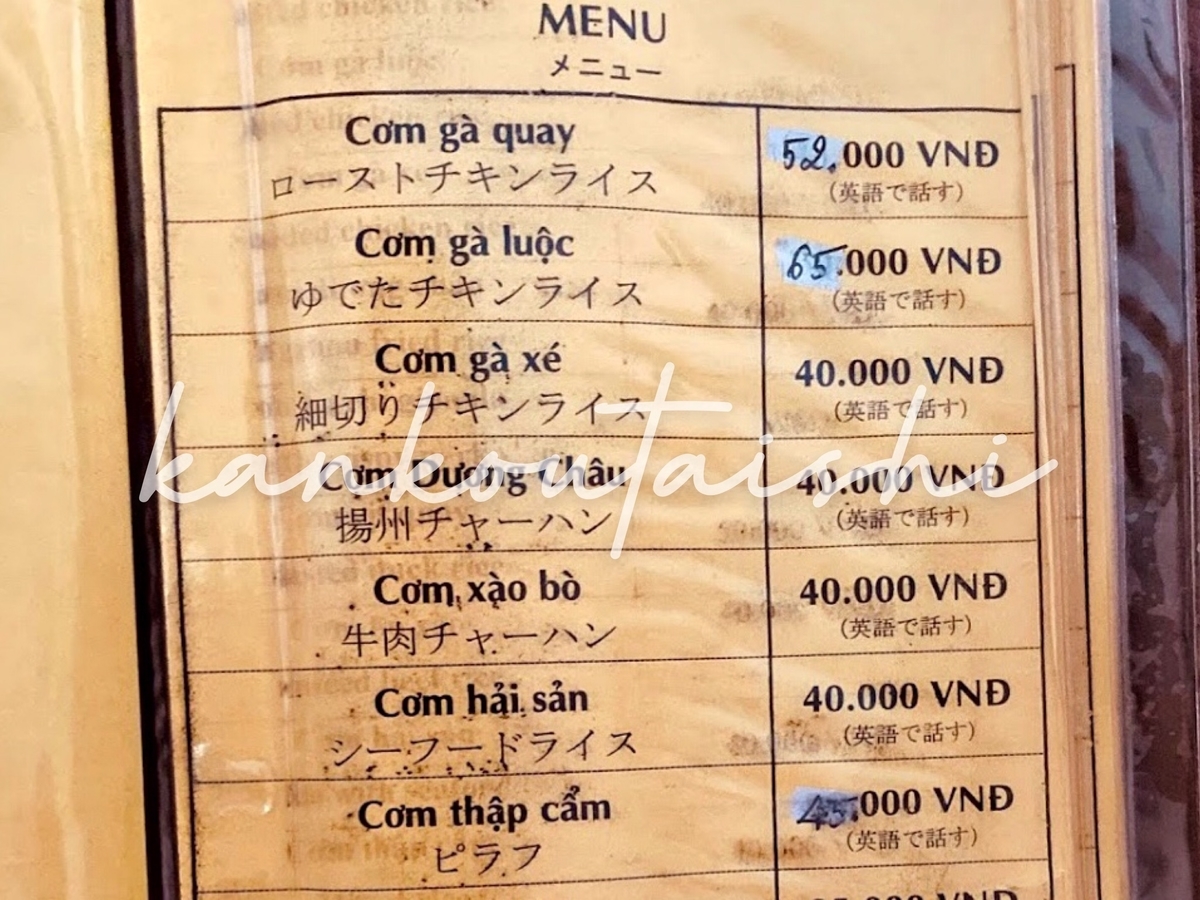 MENU
メニュー
Cơm gà quay
ローストチキンライス
52.000 VNĐ
(英語で話す)
Cơm gà luộc
ゆでたチキンライス
65.000 VNĐ
(英語で話す)
Cơm gà xé
細切りチキンライス
40.000 VNĐ
(英語で話す)
Cơm Dương Châu
揚州チャーハン
40.000 VNĐ
(英語で話す)
kankoutaishi
Cơm xào bò
牛肉チャーハン
40.000 VNĐ
(英語で話す)
Cơm hải sản
シーフードライス
40.000 VNĐ
(英語で話す)
Cơm thập cẩm
ピラフ
45.000 VNĐ
(英語で話す)